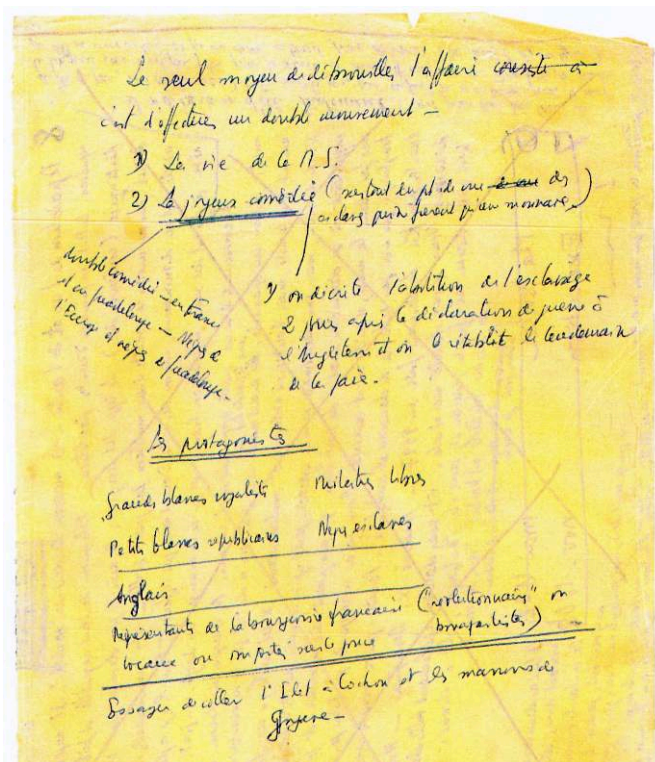 Le seul moyen de débrouiller l'affaire consiste à
c'est d'effectuer un double mouvement –
1) La vie de la M.S.
2) La joyeuse comédie (surtout du pt de vue des
esclaves qui ne furent qu'une monnaie)
double comédie – en France
et en Guadeloupe – Nègres de
l'Europe et nègres de Guadeloupe.
1) on décrète l'abolition de l'esclavage
2 jours après la déclaration de guerre à
l'Angleterre et on le rétablit le lendemain
de la paix.
Les protagonistes
Grands blancs royalistes Mulâtres libres
Petits blancs républicains Nègres esclaves
Anglais
Représentants de la bourgeoisie française ("révolutionnaire" ou
bonapartistes)
locaux ou importés sur la place
Essayer de coller l'Ilet à Cochon et les marrons de